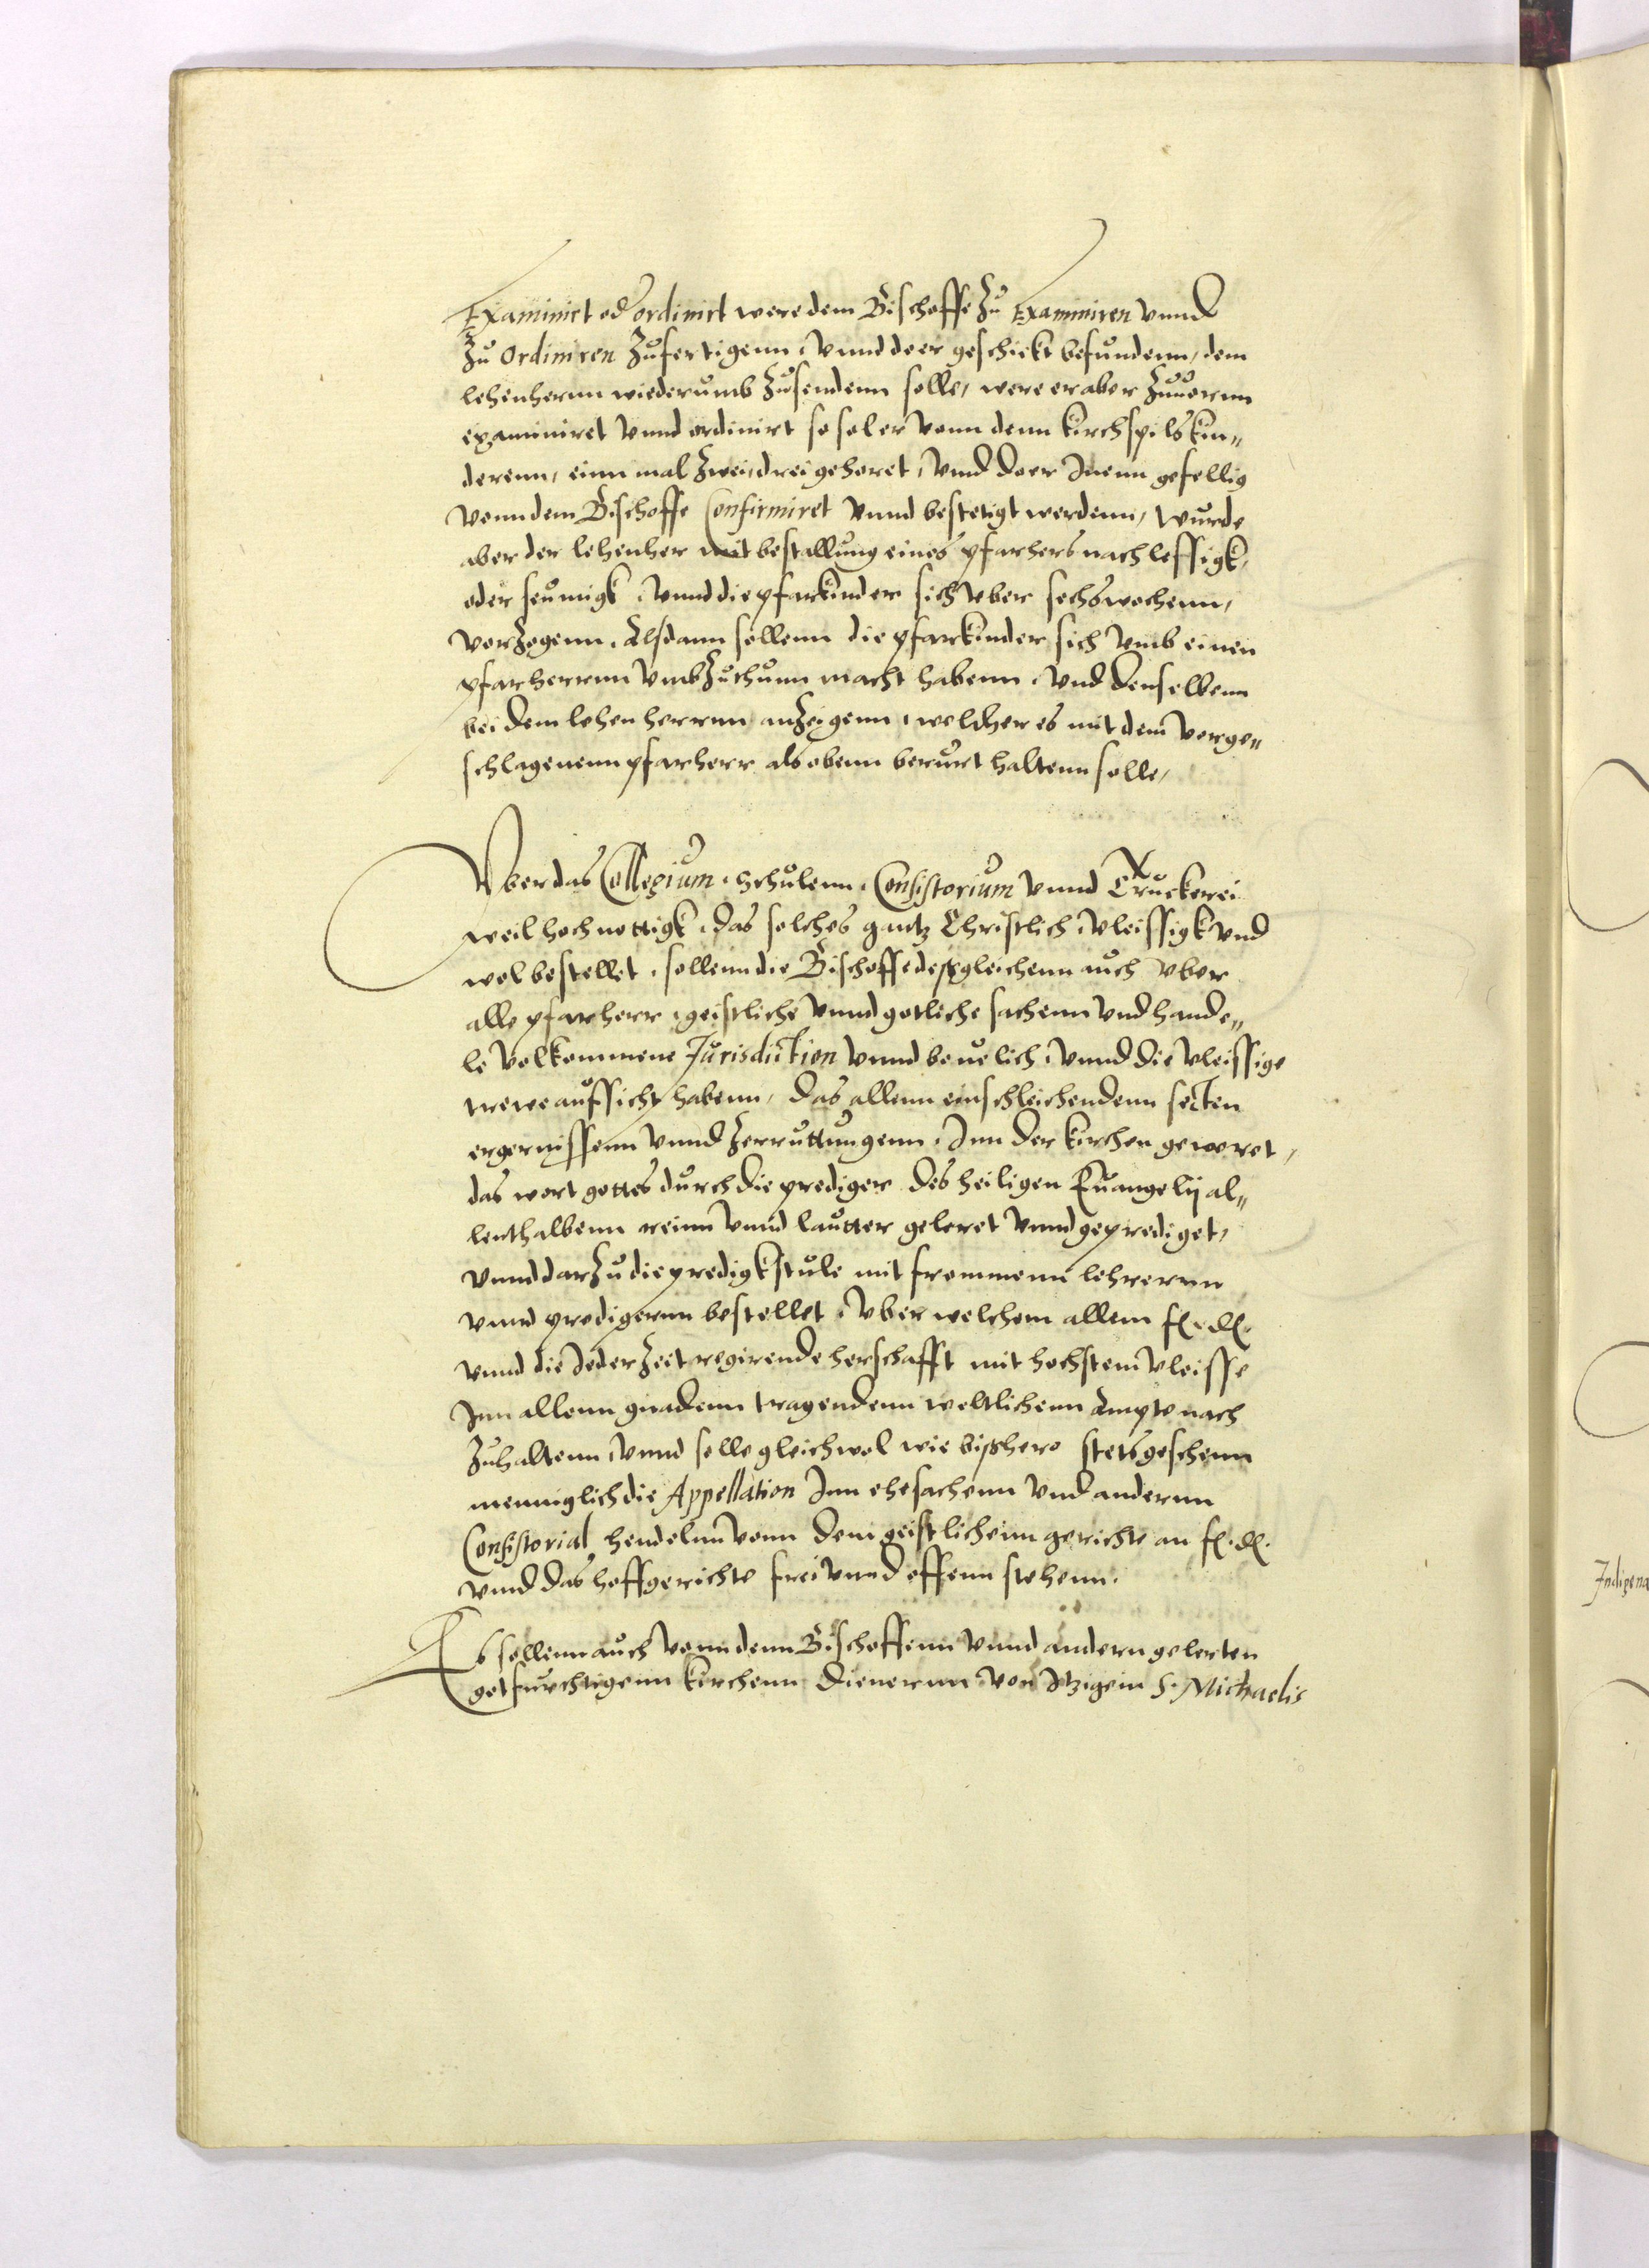 Examinirt oder ordinirt were dem Bischoffe zu Examiniren vnnd
zu Ordiniren zufertigenn, vnnd do er geschickt befundenn, dem
lehenhernn wiederumb zusendenn solle, were er aber zuuornn
examiniret vnnd ordinirt so sol er vonn denn kirchspilskin„
derenn, einn mal zwei, drei gehoret, vnnd do er Inenn gefellig
vonn dem Bischoffe Confirmiret vnnd bestetigt werdenn, wurde
aber der lehenher mit bestallung eines pfarhers nachlessigk,
oder seumigk, vnnd die pfarkinder sich vber sechs wochenn,
verzogenn, Alsdann sollenn die pfarkinder sich vmb einen
pfarherrnn vmbzuthunn macht habenn, vnd denselbenn
bei dem lehenherrnn anzeigenn, welcher es mit dem vorge„
schlagenenn pfarherr als obenn berurt haltenn solle,
Vber das Collegium, Schulenn, Consistorium vnnd Truckerei
weil hoch nottigk, das solches gantz Christlich, vleissigk vnd
wol bestellet, sollenn die Bischoffe desgleichenn auch vber
alle pfarherr, geistliche vnnd gotliche sachenn vnd hande„
le volkommene Jurisdiction vnnd beuelich, vnnd die vleissige
trewe aufsicht habenn, das allenn einschleichendenn secten
ergernissenn vnnd zerruttungenn, Inn der kirchen geweret,
das wort gottes durch die prediger des heiligen Euangelij al„
lenthalbenn reinn vnnd lautter geleret vnnd geprediget,
vnnd darzu die predigkstule mit frommenn lehrernn
vnnd predigernn bestellet, vber welchem allem f. d.
vnnd die Jederzeit regirende herschafft mit hochstem vleisse
Inn allenn gnadenn tragendenn weltlichenn Ampte nach
zuhaltenn, vnnd solle gleichwol wie bishero stets geschenn
menniglich die Appellation Inn ehesachenn vnd andernn
Consistorial hendelnn vonn dem geistlichenn gerichte an f. d.
vnnd das hoffgerichte frei vnnd offenn stehenn.
Es sollenn auch vonn denn Bischoffenn vnnd andern gelerten
gotfurchtigenn kirchenn dienernn von Itzigem S. Michaelis